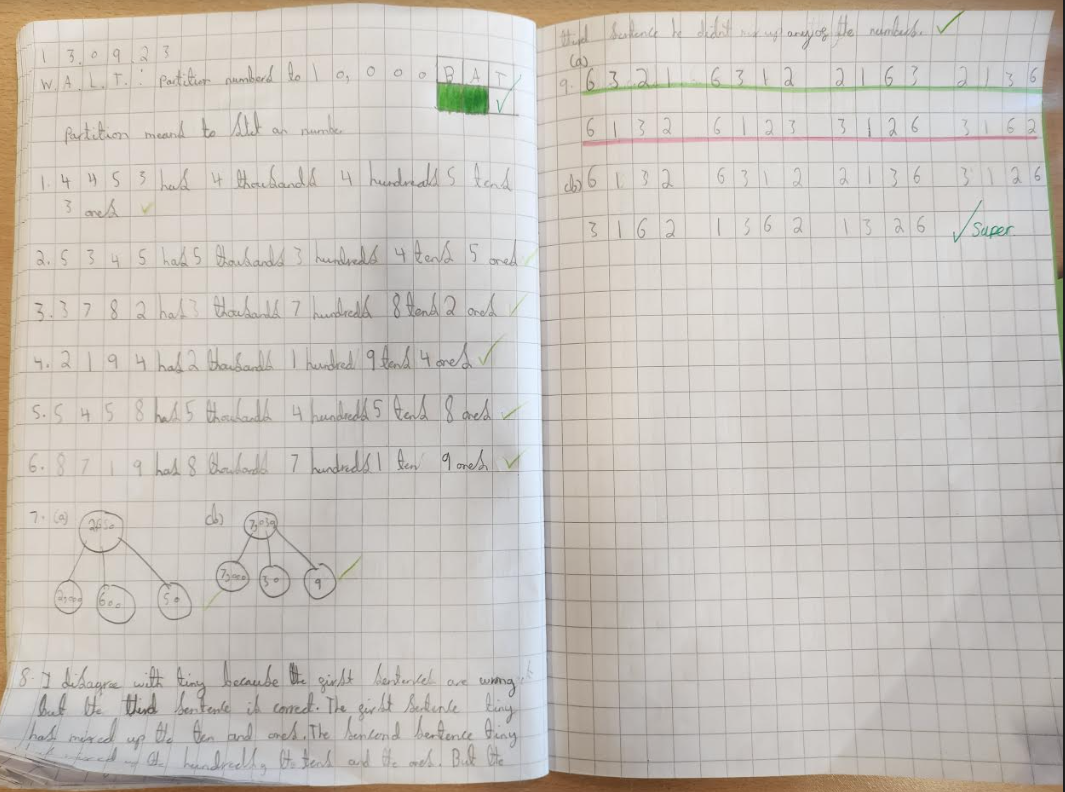 1 3.0 9.2 3
W.A.L.T.: Partition numbers to 1 0, 0 0 0 B A T
Partition means to an number
1. 4 4 5 3 has 4 thousands 4 hundreds 5 tens
3 ones
2. 5 3 4 5 has 5 thousands 3 hundreds 4 tens 5 ones
3. 3 7 8 2 has 3 thousands 7 hundreds 8 tens 2 ones
4. 2 1 9 4 has 2 thousands 1 hundred 9 tens 4 ones
5. 5 4 5 8 has 5 thousands 4 hundreds 5 tens 8 ones
6. 8 7 1 9 has 8 thousands 7 hundreds 1 ten 9 ones
7. (a) 2650 (b) 7,039
2,000 600 50 7,000 30 9
8. I disagree with tiny because the first sentences are wrong
but the third sentence is correct. The first sentence tiny
has mixed up the ten and ones. The sencond sentence tiny
the hundreds, the tens and the ones. But the
third sentence he didn't mix up any of the numbers.
(a)
9. 6 3 2 1 6 3 1 2 2 1 6 3 2 1 3 6
6 1 3 2 6 1 2 3 3 1 2 6 3 1 6 2
(b) 6 1 3 2 6 3 1 2 2 1 3 6 3 1 2 6
3 1 6 2 1 3 6 2 1 3 2 6 Super